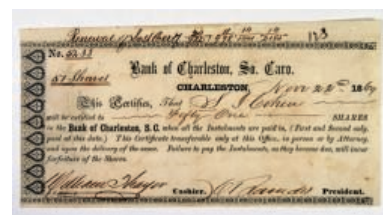 Renewal of Lost Certf
123
No. 5233
51 Shares
Bank of Charleston, So. Caro.
CHARLESTON, Nov 22nd 186
This Certifies, That S. J. Cohen
will be entitled to Fifty One SHARES
in the Bank of Charleston, S. C. when all the Instalments are paid in, (First and Second only,
paid at this date.) This Certificate transferable only at this Office, in person or by Attorney,
and upon the delivery of the same. Failure to pay the Instalments, as they become due, will incur
forfeiture of the Shares.
William Thayer Cashier, President.